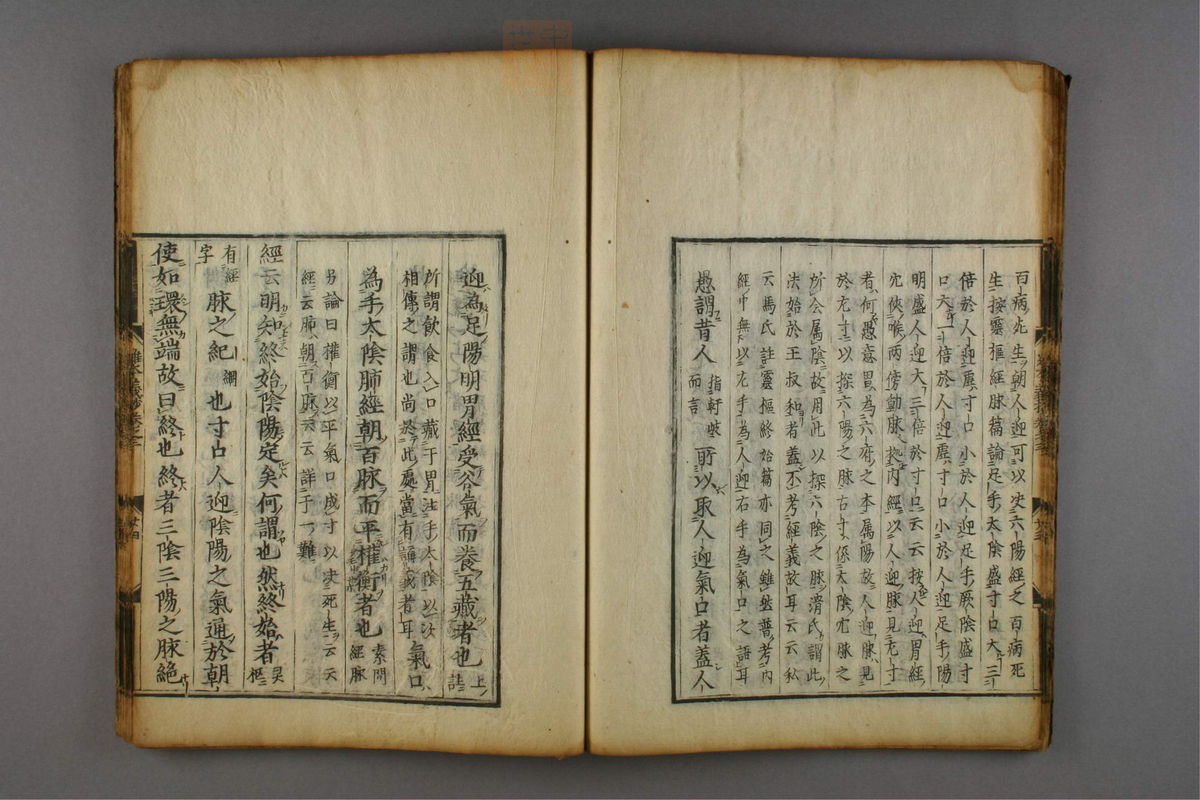 百病死生朝人迎可以决六陽經之百病死
生按靈樞經脉篇論足手太陰盛寸口大三
倍於人迎虛寸口小於人迎足手厥陰盛寸
口大一倍於人迎虛寸口小於人迎足手陽
明盛人迎大三倍於寸口云云按人迎胃經
穴俠喉兩傍動脉按内經以人迎脉見尢寸
者何愚意胃為六府之本属陽故人迎脉見
於尢寸以探六陽之脉右寸係太陰穴脉之
所会属陰故用此以探六陰之脉滑氏謂此
法始於王叔和者蓋不考經義故耳云云私
云馬氏註靈樞終始篇亦同之雖然普考内
經中無以尢手為人迎右手為氣口之語耳
愚謂昔人指軒岐而言所以取人迎氣口者蓋人
迎為足陽明胃經受谷氣而養五藏者也上註
所謂飲食入口藏于胃注手太陰以次
相傳之謂也尚於此處當有誦或者耳氣口
為手太陰肺經朝百脉而平權衡者也素問經脉
另論曰權衡以平氣口成寸以决死生云云
經云肺朝百脉云云詳于一難
經云明知終始陰陽定矣何謂也然終始者吴板
有經字脉之紀綱也寸口人迎陰陽之氣通於朝
使如環無端故曰終也終者三陰三陽之脉絶